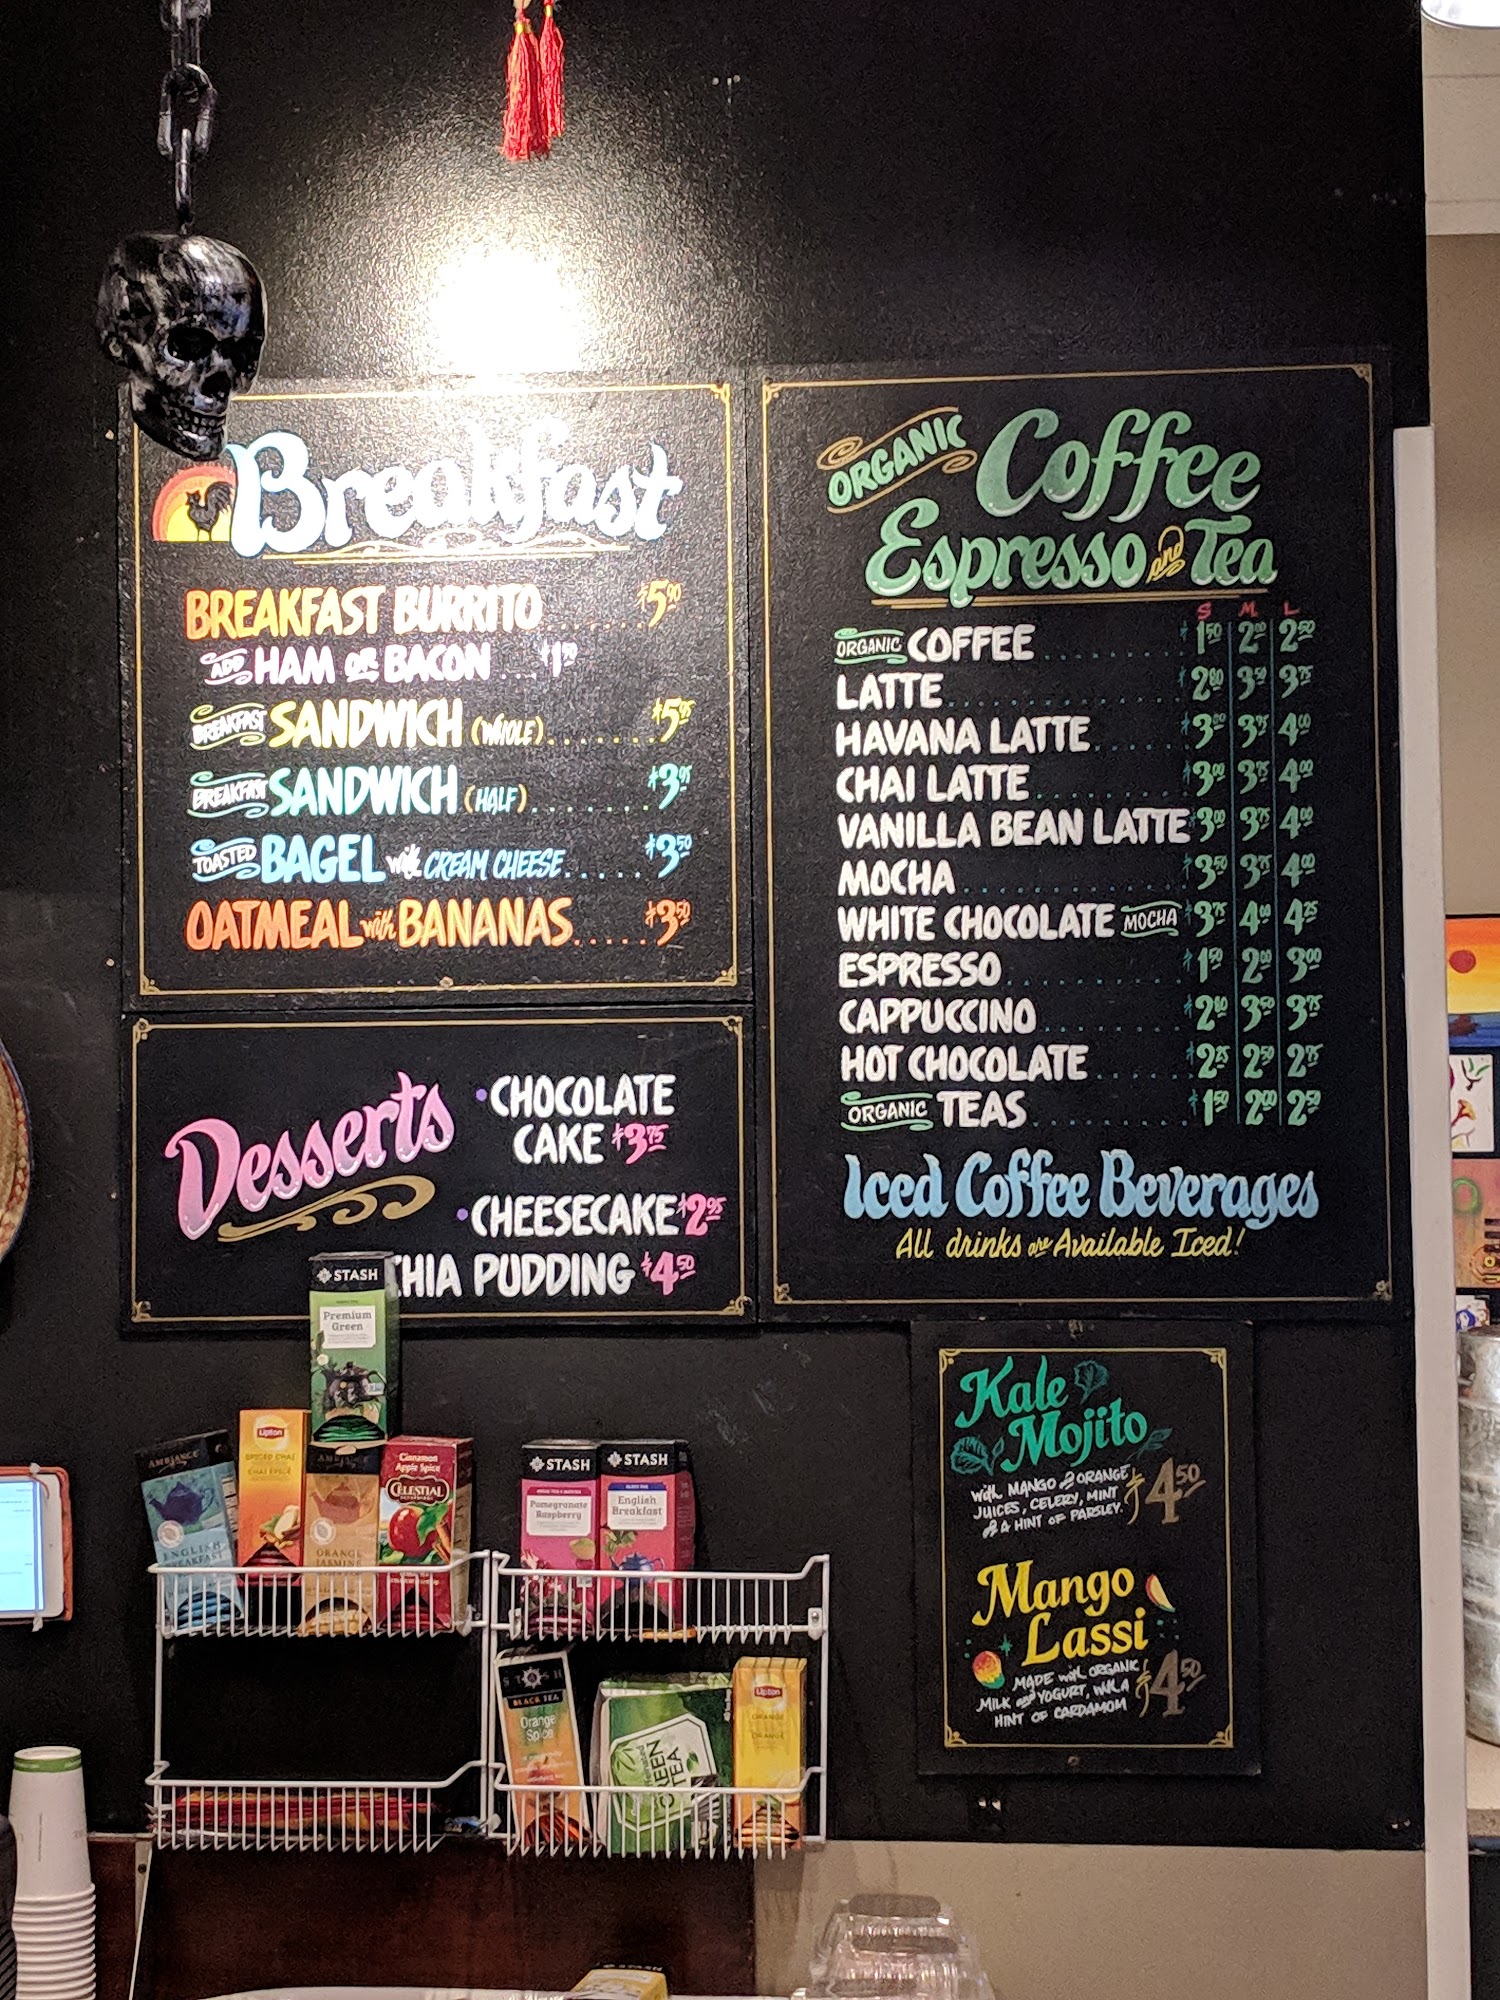 Breakfast
BREAKFAST BURRITO $5.00
ADD HAM OR BACON .... $1.50
BREAKFAST SANDWICH (WHOLE) ....... $5.95
BREAKFAST SANDWICH (HALF) ....... $3.95
TOASTED BAGEL with CREAM CHEESE ..... $3.50
OATMEAL with BANANAS ..... $3.50
Desserts
• CHOCOLATE
CAKE $3.75
• CHEESECAKE $2.95
CHIA PUDDING $4.50
ORGANIC Coffee
Espresso and Tea
S M L
ORGANIC COFFEE $1.50 2.00 2.50
LATTE $2.80 3.50 3.75
HAVANA LATTE $3.00 3.75 4.00
CHAI LATTE $3.00 3.75 4.00
VANILLA BEAN LATTE $3.00 3.75 4.00
MOCHA $3.50 3.75 4.00
WHITE CHOCOLATE MOCHA $3.75 4.00 4.25
ESPRESSO $1.50 2.00 3.00
CAPPUCCINO $2.80 3.50 3.75
HOT CHOCOLATE $2.25 2.50 2.75
ORGANIC TEAS $1.50 2.00 2.50
Iced Coffee Beverages
All drinks are Available Iced!
Kale
Mojito
with MANGO & ORANGE
JUICES, CELERY, MINT
& A HINT OF PARSLEY. $4.50
Mango
Lassi
MADE with ORGANIC
MILK and YOGURT, with A
HINT OF CARDAMOM $4.50
STASH
Premium
Green
AMBIANCE
ENGLISH
BREAKFAST
Lipton
SPICED CHAI
AMBIANCE
ORANGE
JASMINE
Cinnamon
Apple Spice
CELESTIAL
STASH
Pomegranate
Raspberry
STASH
English
Breakfast
STASH
BLACK TEA
Orange
Spice
GREEN
TEA
Lipton
ORANGE